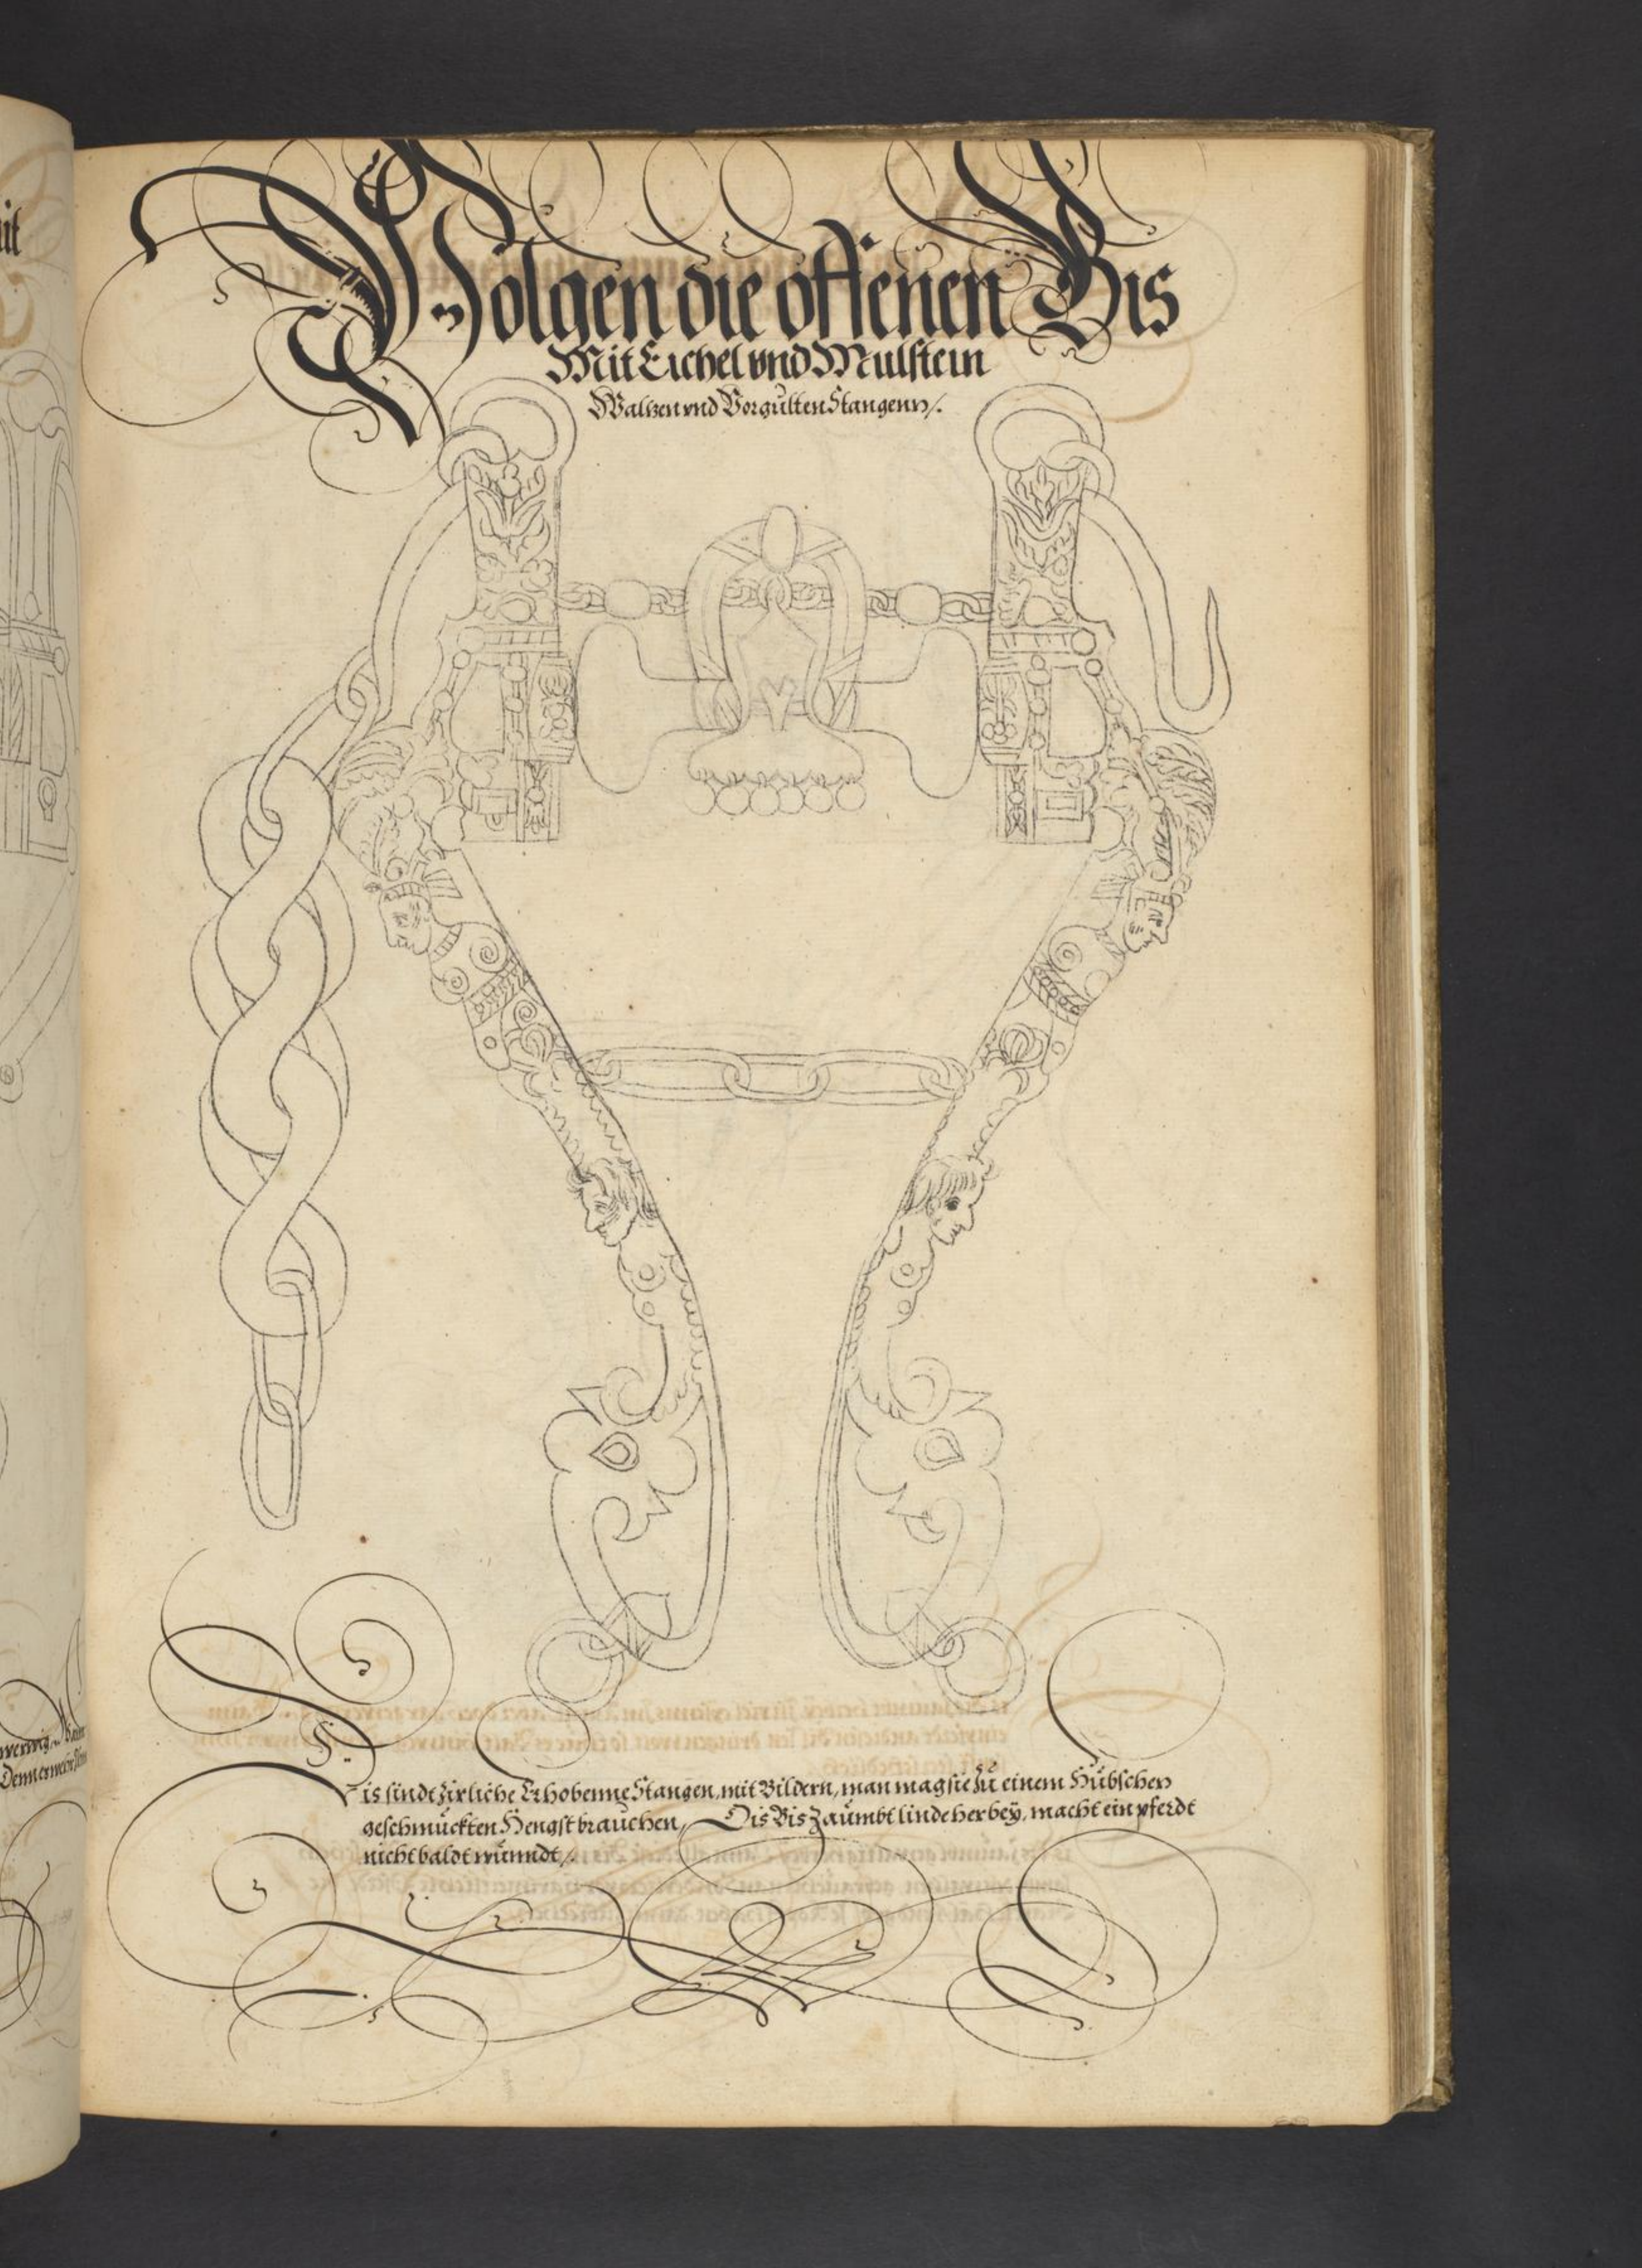 Volgen die offenen Bis
Mit Eichel vnd Mulstein
Waltzen vnd Vorgulten Stangenn/.
Dis sindt zirliche Erhobenne Stangen, mit Bildern, man mag sie zu einem Hübschen
geschmückten Hengst brauchen, Dis Bis zaümbt linde herbey, macht ein pferdt
nicht baldt wundt/.